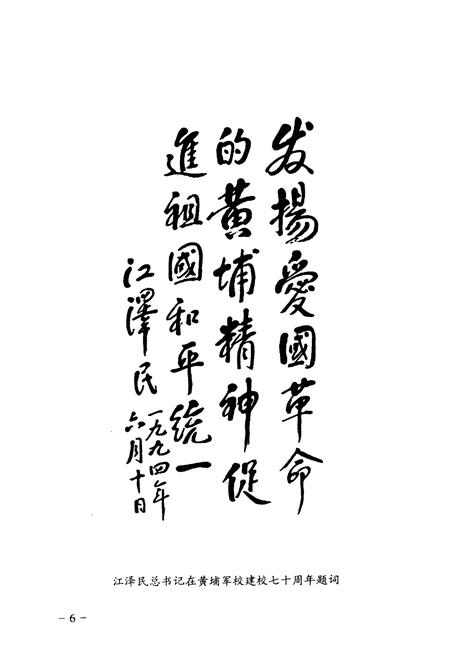 发揚愛國革命
的黄埔精神促
進祖國和平統一
江澤民
一九九四年
六月十日
江泽民总书记在黄埔军校建校七十周年题词
－6－